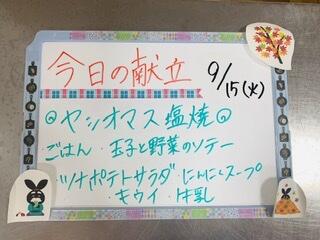 今日の献立
9/15(火)
◎ヤシオマス塩焼◎
ごはん・玉子と野菜のソテー
ツナポテトサラダ・にんにくスープ
キウイ・牛乳